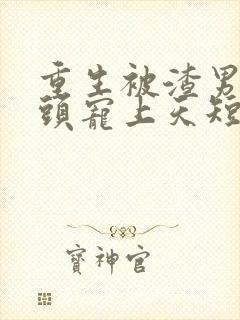 重生被渣男
頭寵上天短
寶神官